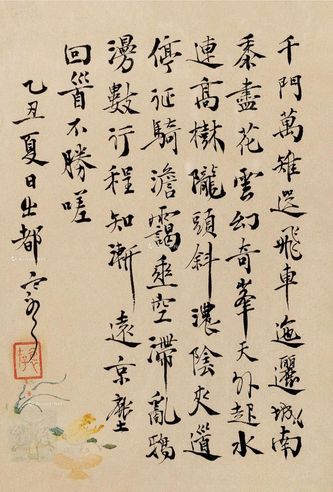 千門萬雉飛車迤邐城南
黍盡花雲幻奇峯天外起水
連高樹隴頭斜濃陰夾道
停征騎澹靄垂空滯亂鴉
漫數行程知漸遠京塵
回首不勝嗟
乙丑夏日出都